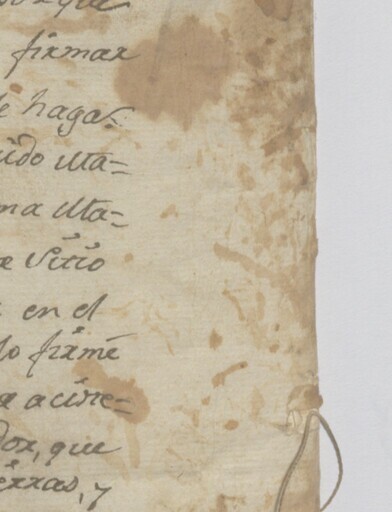 que
firmar
haga=
ido Ma=
ma Ma=
Sitio
en el
lo firmé
a acixe=
dor, que
erras, y